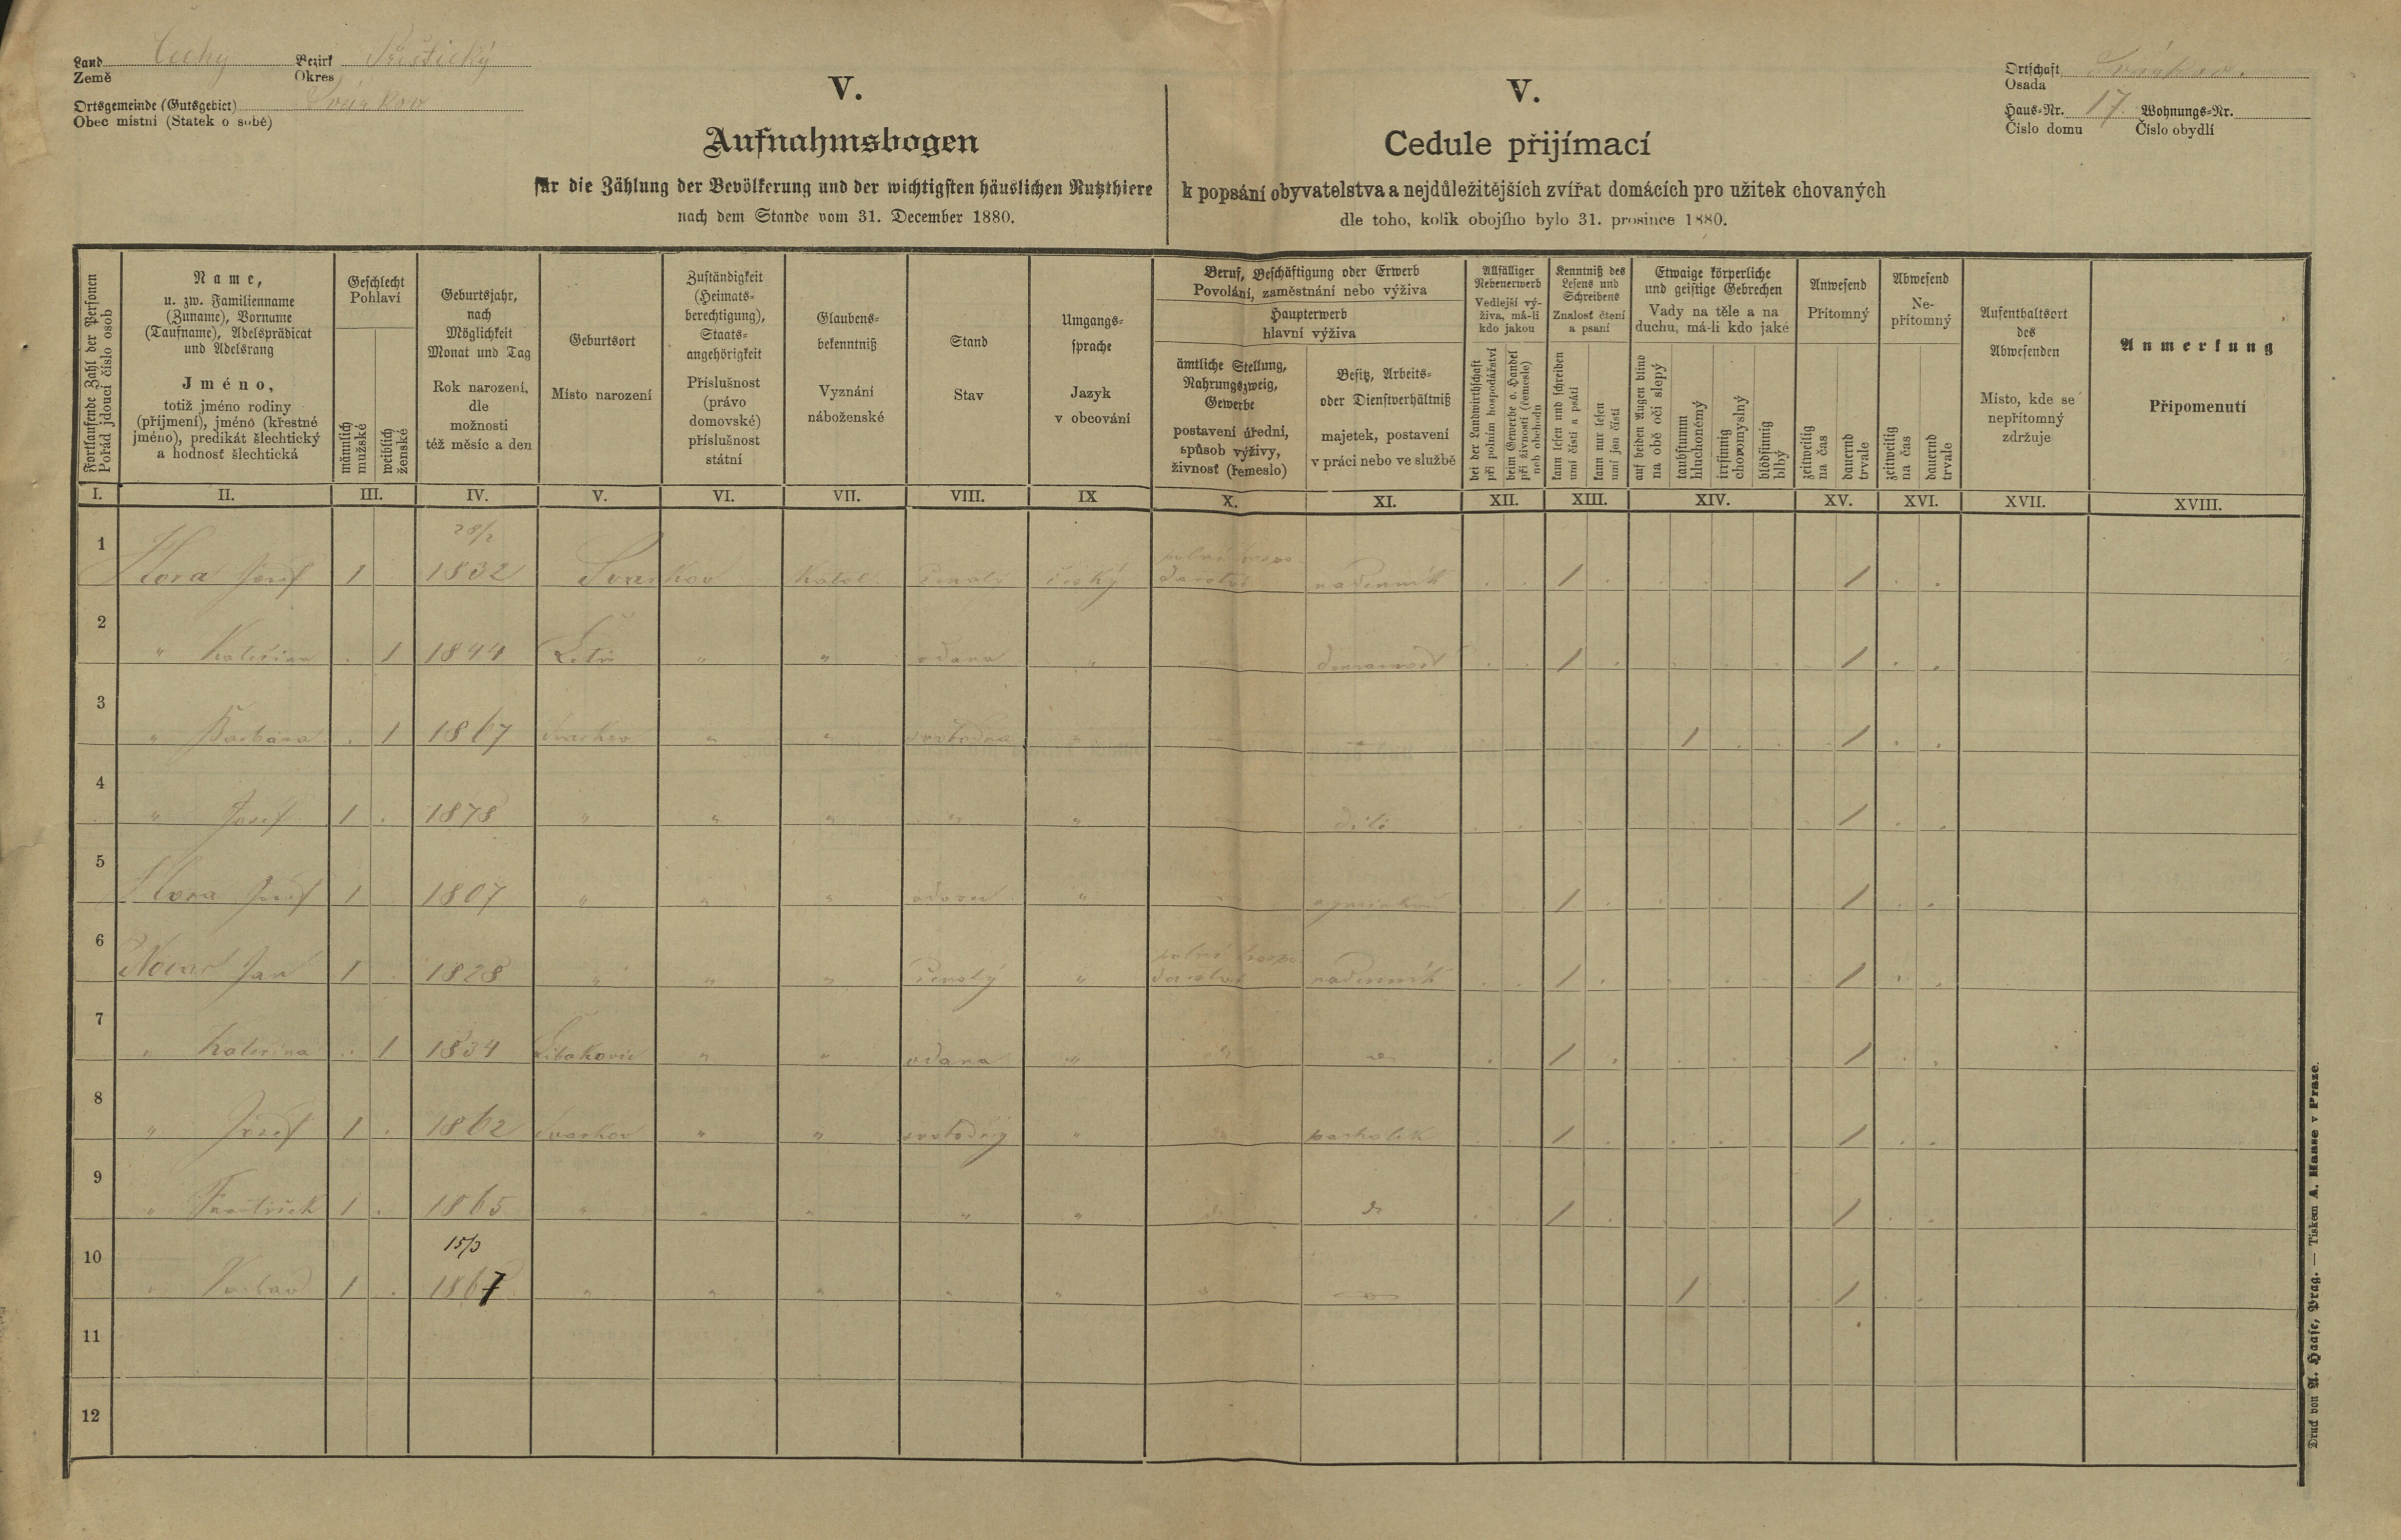 Land Čechy Bezirk Přeštický
Země Okres
Ortsgemeinde (Gutsgebiet) Svárkov
Obec místní (Statek o sobě)
V.
Aufnahmsbogen
für die Zählung der Bevölkerung und der wichtigsten häuslichen Nutzthiere
nach dem Stande vom 31. December 1880.
V.
Cedule přijímací
k popsání obyvatelstva a nejdůležitějších zvířat domácích pro užitek chovaných
dle toho, kolik obojího bylo 31. prosince 1880.
Ortschaft Svárkov.
Osada
Haus-Nr. 17. Wohnungs-Nr.
Číslo domu Číslo obydlí
Fortlaufende Zahl der Personen
Pořád jdoucí číslo osob
Name,
u. zw. Familienname
(Zuname), Vorname
(Taufname), Adelsprädicat
und Adelsrang
Jméno,
totiž jméno rodiny
(příjmení), jméno (křestné
jméno), predikát šlechtický
a hodnosť šlechtická
Geschlecht
Pohlaví
männlich
mužské
weiblich
ženské
Geburtsjahr,
nach
Möglichkeit
Monat und Tag
Rok narození,
dle
možnosti
též měsíc a den
Geburtsort
Místo narození
Zuständigkeit
(Heimats-
berechtigung),
Staats-
angehörigkeit
Příslušnost
(právo
domovské)
příslušnost
státní
Glaubens-
bekenntniß
Vyznání
náboženské
Stand
Stav
Umgangs-
sprache
Jazyk
v obcování
Beruf, Beschäftigung oder Erwerb
Povolání, zaměstnání nebo výživa
Haupterwerb
hlavní výživa
ämtliche Stellung,
Nahrungszweig,
Gewerbe
postavení úřední,
způsob výživy,
živnosť (řemeslo)
Besitz, Arbeits-
oder Dienstverhältniß
majetek, postavení
v práci nebo ve službě
Allfälliger
Nebenerwerb
Vedlejší vý-
živa, má-li
kdo jakou
bei der Landwirthschaft
při polním hospodářství
beim Gewerbe o. Handel
při živnosti (řemesle)
neb obchodu
Kenntniß des
Lesens und
Schreibens
Znalosť čtení
a psaní
kann lesen und schreiben
umí čísti a psáti
kann nur lesen
umí jen čísti
Etwaige körperliche
und geistige Gebrechen
Vady na těle a na
duchu, má-li kdo jaké
auf beiden Augen blind
na obě oči slepý
taubstumm
hluchoněmý
irrsinnig
choromyslný
blödsinnig
blbý
Anwesend
Přítomný
zeitweilig
na čas
dauernd
trvale
Abwesend
Ne-
přítomný
zeitweilig
na čas
dauernd
trvale
Aufenthaltsort
des
Abwesenden
Místo, kde se
nepřítomný
zdržuje
Anmerkung
Připomenutí
I. II. III. IV. V. VI. VII. VIII. IX X. XI. XII. XIII. XIV. XV. XVI. XVII. XVIII.
28/2
1 Hora Josef 1 1832 Svarkov katol. ženatý český nádenník / /
2 " Kateřina . 1 1844 " " vdana " / /
3 " Barbora . 1 1867 Svarkov " " svobodna " / /
4 " Josef 1 . 1878 " " " " " dítě /
5 Hora Josef 1 1807 " " " vdovec " / /
polní hospo
6 Jan 1 . 1828 " " " ženatý " dářství nádenník / /
7 " Kateřina . 1 1834 " " vdana " / /
8 " Josef 1 . 1862 Svarkov " " svobodný " pacholek / /
9 " František 1 . 1865 " " " " " / /
15/3
10 " 1 . 1867 " " " " " / /
11
12
Druck von A. Haase, Prag. — Tiskem A. Haase v Praze.